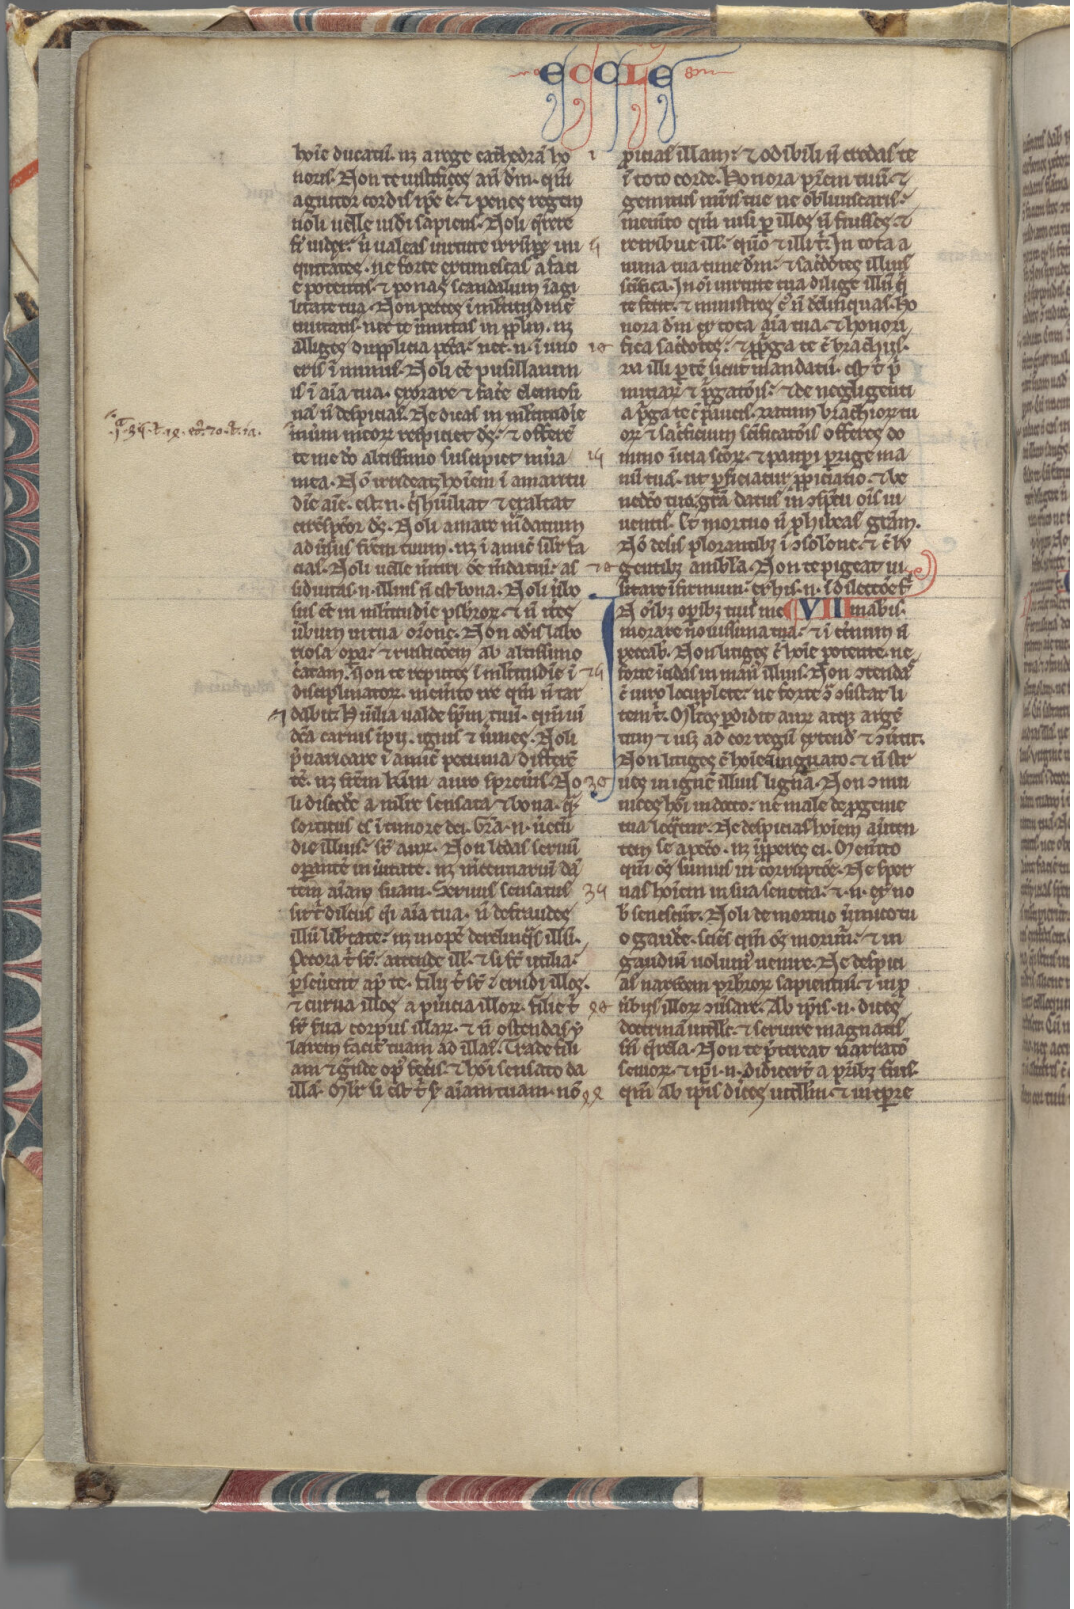 ECCLE
hoīe ducatū. nȝ a rege cathedrā ho
noris. Non te iustifices añ dm̄. qm̄
agnitor cordis ip̄e ē. ⁊ penes regem
noli uelle uid'i sapiens. Noli q̄rere
fi'i iudex. ñ ualeas uirtute irrūpe ini
quitates. ne forte extimescas a faci
e potentis. ⁊ ponas scandalum ī agi
litate tua. Non pecces ī m̄ltitudinē
ciuitatis. nec te īmittas in pp̄lm. nȝ
alliges duplicia pc̄ta. nec .n. ī uno
eris īmunis. Noli eē pusillanim
is ī aīa tua. exorare ⁊ fac'e elemosi
nā ñ despicias. Ne dicas in m̄ltitudīe
munm̄ meoȝ respiciet ds̄. ⁊ offerē
te me dō altissimo suscipiet mūa
mea. Nō irrideas hoīem ī amaritu
dīe aīe. est .n. q̄ hūiliat ⁊ exaltat
circūspc̄or ds̄. Noli amare m̄dacium
aduīsus fr̄em tuum. nȝ ī amicū silr̄ fa
cias. Noli uelle m̄tiri oē m̄daciū. as
siduitas .n. illius ñ est bona. Noli ūbo
sus eē in m̄ltitudīe p̄sbroȝ. ⁊ ñ ites
ūbum in tua or̄one. Non odīs labo
riosa opa. ⁊ rusticōem ab altissimo
c̄atam. Non te reputes ī m̄ltitudīe ī
disciplinatoȝ. mem̄to ire qm̄ ñ tar
dabit. Humilia ualde sp̄m tuū. qm̄ uī
dc̄a carnis īpii. ignis ⁊ ūmes. Noli
p̄uaricare ī amicū pecunia differē
tē. nȝ fr̄em k̄m̄ auro spreūis. No
li disced'e a m̄lre sensata ⁊ bona. q̄
sortitus es ī timore dei. gr̄a .n. ūecū
die illius. sr̄ auȝ. Non ledas seruū
opantē in ūitate. nȝ m̄cennariū dā
tem aīam suam. Seruus sensatus
sit t̄ dilcūs q̄i aīa tua. ñ defraudes
illū lib'tate. nȝ inopē derelinq̄s illū.
Pecora t̄ st̄. attende ill'. ⁊ si st̄ utilia.
p̄seūent ap̄ te. filii t̄ st̄. erudi illos.
⁊ curua illos a pūicia illoȝ. filie t̄
st̄. s̄ua corpus illaȝ. ⁊ ñ ostendas hy
larem faciē tuam ad illas. Trade fili
am ⁊ g̃nde op' fec̄is. ⁊ hoī sensato da
illā. Mlr̄ si est t̄ s̄ aīam tuam. nō
.34.
1
5
10
15
20
25
30
35
40
45
p̄icias illam. ⁊ odibili ñ credas te
ī toto corde. Honora pr̄em tuū. ⁊
gemitus mr̄is tue ne obliuiscaris.
mem̄to qm̄ nisi p illos ñ fuisses. ⁊
retribue ill'. quō ⁊ illi t̄. In tota a
nima tua time dm̄. ⁊ sac̄dotes illius
sc̄ifica. In oī uirtute tua dilige illū q̄
te fecit. ⁊ ministros ei' ñ derelinquas. Ho
nora dm̄ ex tota aīa tua. ⁊ honori
fica sac̄dotes. ⁊ ppurga te c̄ brachiis.
Da illi ptē sicut mandatū est t̄ p̄
mitiaȝ ⁊ p̄gatōis. ⁊ de negligenti
a p̄ga te c̄ paucis. datum brachioȝ tu
oȝ ⁊ sac̄ficium sc̄ificatōis offeres do
mino īicia sc̄oȝ. ⁊ paupi porrige ma
nū tuā. ut p̄ficiatur ppiciatio. ⁊ be
nedc̄o tua. gr̄a datus in ɔspc̄u oīs ui
uentis. ⁊ mortuo ñ phibeas gr̄am.
Nō desis plorantibȝ ī ɔsolōne. ⁊ c̄ lu
gentibȝ ambula. Non te pigeat ui
sitare īfirmum. ex his .n. ī dilectōe f'
IN oībȝ opibȝ tuis me VII mābis.
morare nouissima tua. ⁊ ī et̄num ñ
peccab. Non litiges c̄ hoīe potente. ne
forte īcidas in man' illius. Non ɔtendas
c̄ uiro locuplete. ne forte ɔ̄ ɔstituat li
tem t̄. Mltos pdidit auȝ atqȝ argē
tum ⁊ usqȝ ad cor regū extend' ⁊ ɔūtit.
Non litiges c̄ hoīe linguato. ⁊ ñ str
ues in ignē illius ligna. Non ɔmu
nices hoī indocto. ne male de p̄genie
tua loq̄tur. Ne despicias hoīem aūten
tem se a pc̄cō. nȝ īpperes ei. Mem̄to
qm̄ oēs sumus in corruptōe. Ne sper
nas hoīem in sua senecta. ⁊ .n. ex no
b̄ senescūt. Noli de mortuo īimico tu
o gaud'e. sciēs qm̄ oēs morim̄. ⁊ in
gaudiū uolum' uenire. Ne despici
as narrōem p̄sbroȝ sapientiū. ⁊ in p
ūbiis illoȝ ɔūsare. Ab ip̄is .n. disces
doctrinā intelle. ⁊ seruire magnatis
sñ q̄rela. Non te p̄tereat narratō
senioȝ. ⁊ ip̄i .n. didicer̄t a pribȝ suis.
qm̄ ab ip̄is disces intellm̄. ⁊ in tp̄re